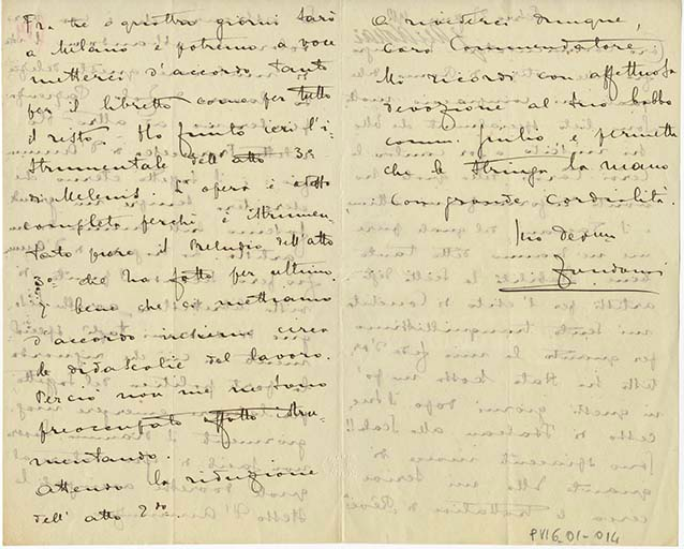 Fra tre o quattro giorni sarò
a Milano e potremo a voce
metterci d'accordo tanto
per il libretto come per tutto
il resto. Ho finito ieri l'i-
strumentale dell'atto 3º
di Melenis. L'opera è adesso
completa perchè è istrumen-
tato pure il Preludio dell'atto
3º che ho fatto per ultimo.
È bene che ci mettiamo
d'accordo insieme circa
le didascalie del lavoro.
Perciò non me ne sono
preoccupato affatto istru-
mentando.
Attendo la riduzione
dell'atto 2do.
A rivederci dunque,
caro Commendatore
Mi ricordi con affettuosa
devozione al Suo babbo
comm. Giulio e permetta
che le stringa la mano
con grande cordialità.
Suo devmo
Zandonai
PVIG.01-014